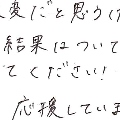 変だと思うけ
結果について
てください!
応援していま